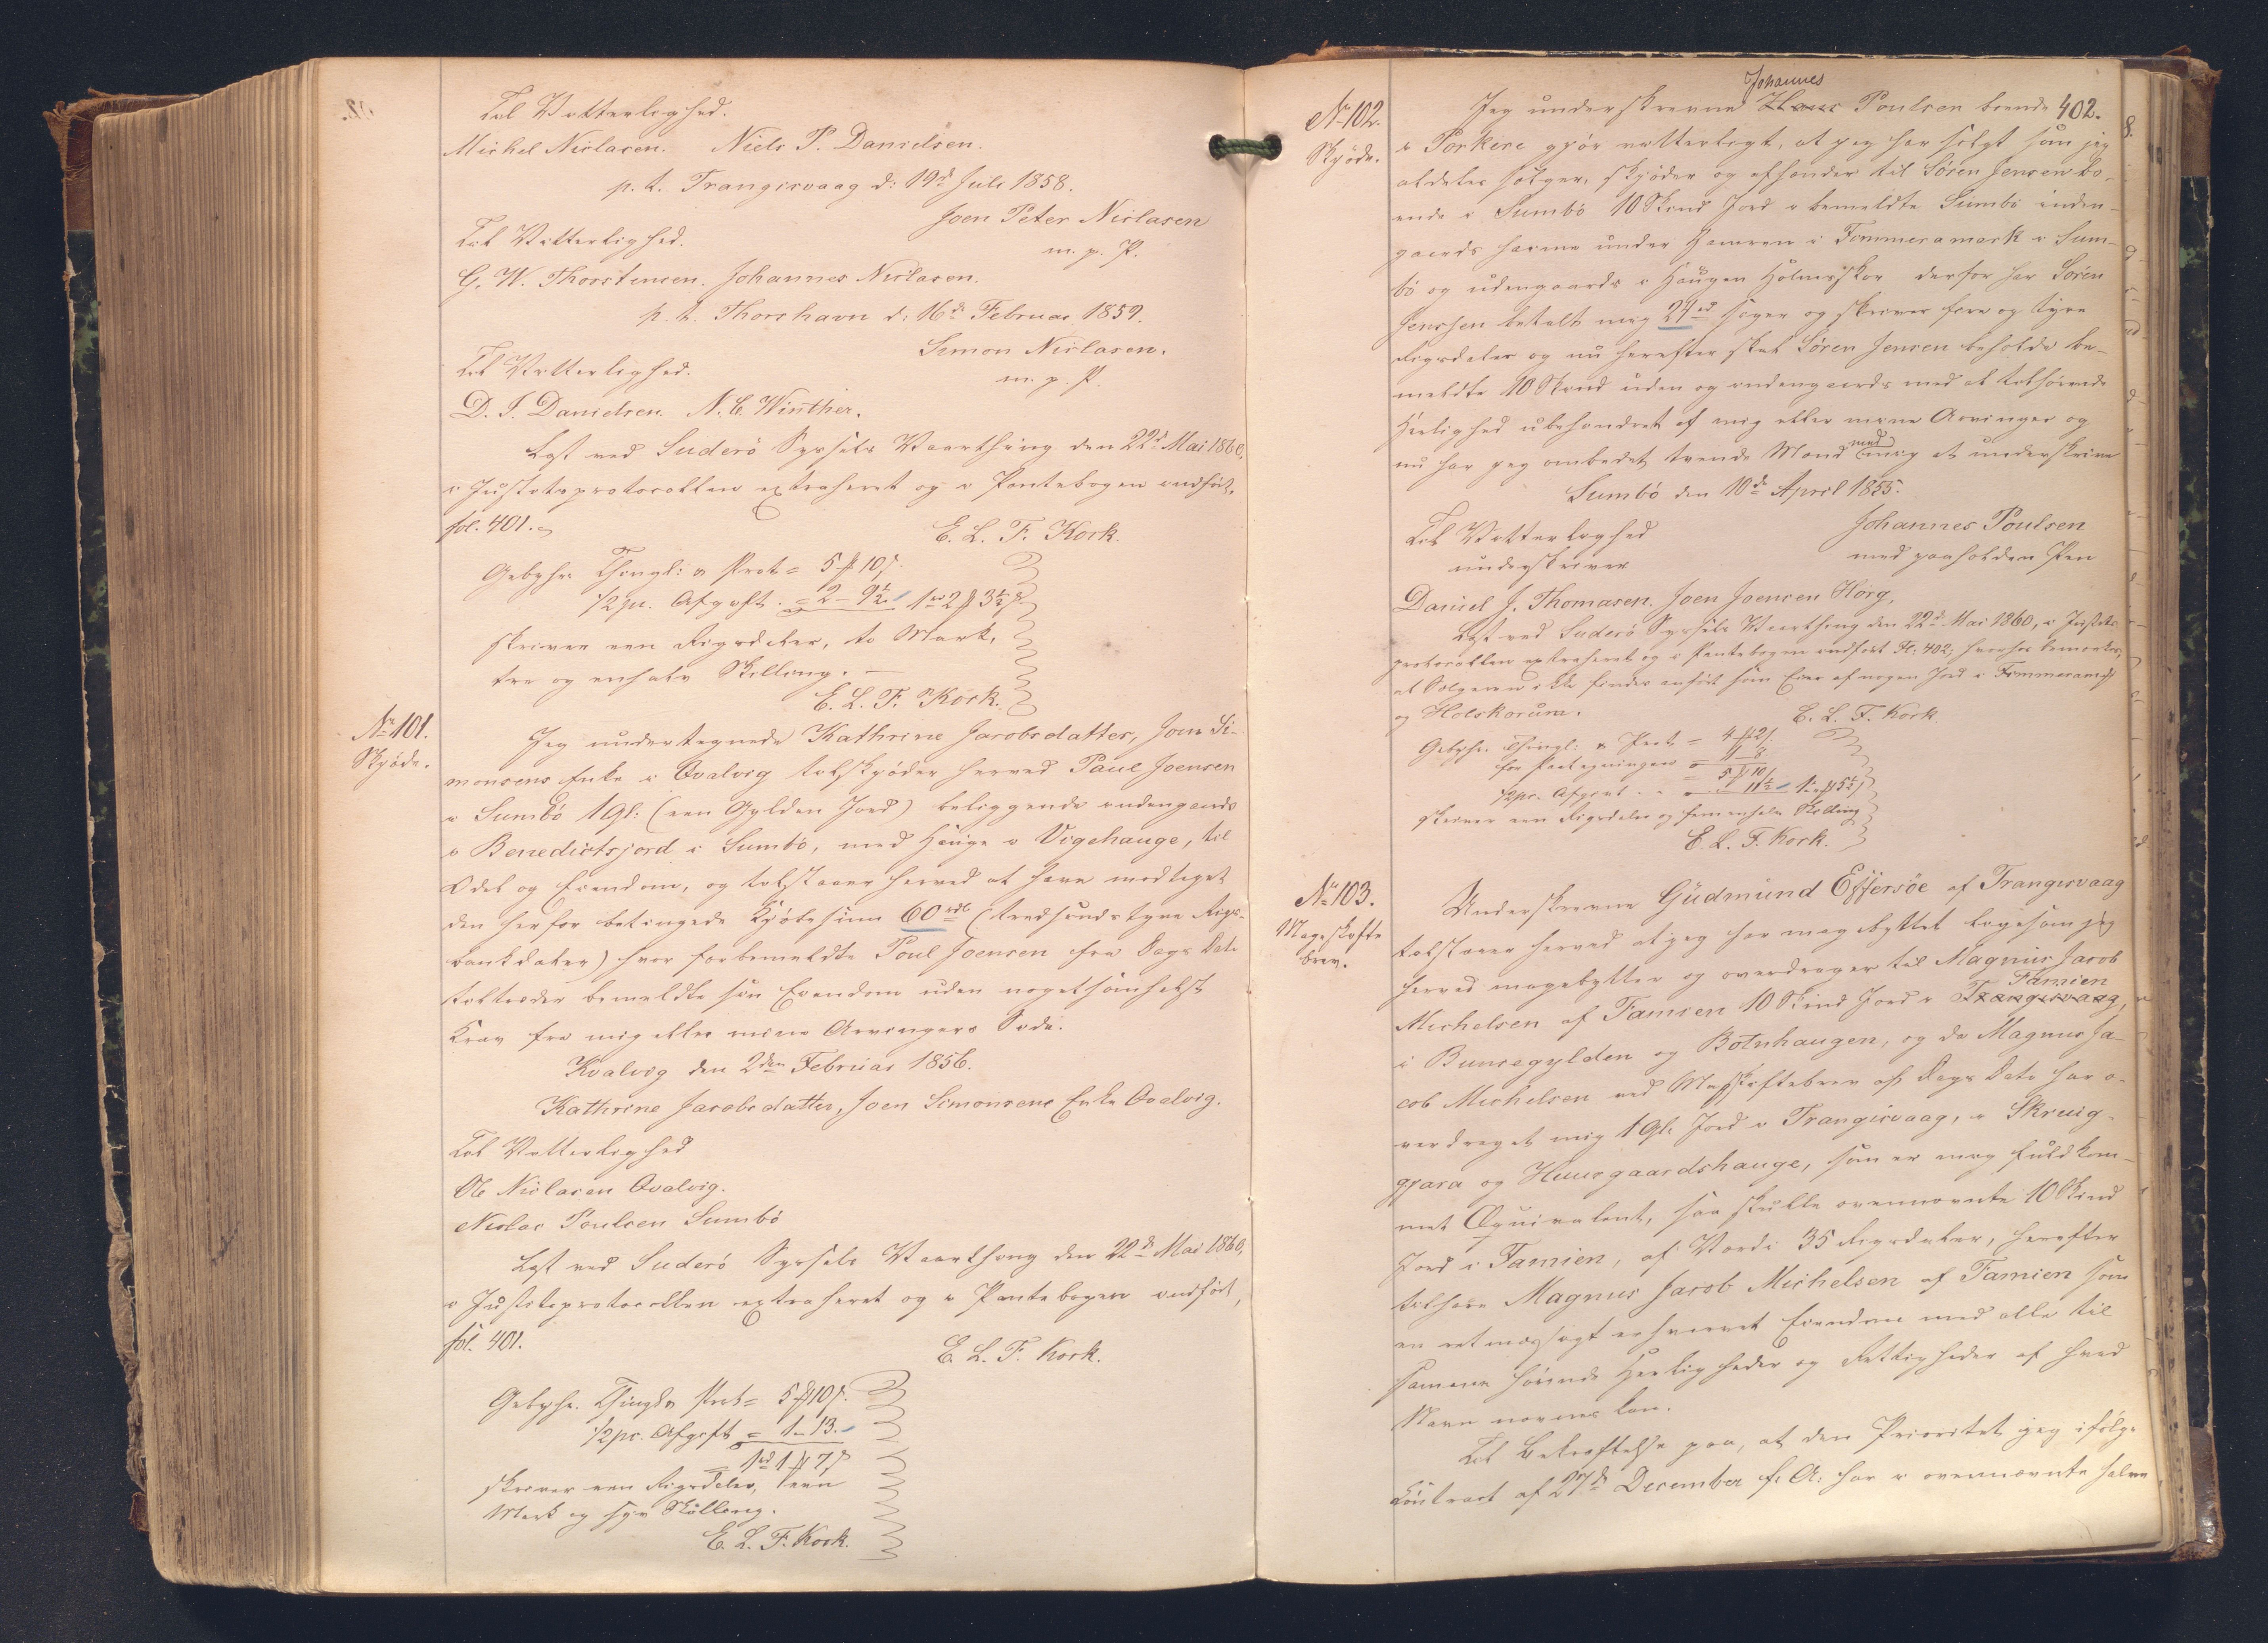 Til Vitterlighed.
Michel Niclasen. Niels P. Danielsen.
p. t. Trangisvaag d: 19d Juli 1858.
Joen Peter Niclasen
m. p. P.
Til Vitterlighed.
G. W. Thorstensen. Johannes Niclasen.
p. t. Thorshavn d: 16d Februar 1859.
Simon Niclasen.
m. p. P.
Til Vitterlighed.
D. J. Danielsen N. C. Winther.
Læst ved Suderö Syssels Vaarthing den 22d Mai 1860,
i Justitsprotocollen extraheret og i Pantebogen indført,
fol. 401.
E. L. F. Kock.
Gebyhr. Thingl: & Prot = 5 ₰ 10 ß.
1/2 pc. Afgift. = 2 – 9½ 1 rd 2 ₰ 3½ ß
skriver een Rigsdaler, to Mark,
tre og enhalv Skilling. —
E. L. F. Kock.
No 101.
Skjöde.
Jeg undertegnede Kathrine Jacobsdatter, Joen Si-
monsens Enke i Qvalvig tilskjöder herved Paul Joensen
i Sumbö 1 Gl: (een Gylden Jord) beliggende indengaards
i Benedictsjord i Sumbö, med Hauge i Vigehauge, til
Odel og Eiendom, og tilstaaer herved at have modtaget
den herfor betingede Kjöbesum 60 rdl (tredsindstyve Rigs-
bankdaler) hvor forbemeldte Poul Joensen fra Dags Dato
tiltræder bemeldte sin Eiendom uden nogetsomhelst
Krav fra mig eller mine Arvingers Side.
Kvalvig den 2den Februar 1856.
Kathrine Jacobsdatter, Joen Simonsens Enke Qvalvig.
Til Vitterlighed
Ole Niclasen Qvalvig.
Nicolas Poulsen Sumbö
Læst ved Suderö Syssels Vaarthing den 22d Mai 1860,
i Justitsprotocollen extraheret og i Pantebogen indført,
fol. 401.
E. L. F. Kock.
Gebyhr. Thingl & Prot = 5 ₰ 10 ß.
1/2 pc. Afgift = 1 – 13.
1 rd 1 ₰ 7 ß
skriver een Rigsdaler, een
Mark og syv Skilling.
E. L. F. Kock.
402.
No 102.
Skjöde.
Johannes
Jeg underskrevne Hans Poulsen boende
i Porkere gjör vitterligt, at jeg har solgt som jeg
aldeles sælger, skjöder og afhænder til Sören Jensen bo-
ende i Sumbö 10 Skind Jord i bemeldte Sumbö inden-
gaards under Hamren i Fimmeramark i Sum-
bö og udengaards i Haugen Holmeskor derfor har Sören
Jenssen betalt mig 24 rd siger og skriver fire og tyve
Rigsdaler og nu herefter skal Sören Jensen beholde be-
meldte 10 Skind uden og indengaards med al tilhörende
Herlighed ubehindret af mig eller mine Arvinger og
nu har jeg ombedet tvende Mænd med mig at underskrive
Sumbö den 10de April 1855.
Johannes Poulsen
med paaholden Pen
Til Vitterlighed
underskriver
Daniel J. Thomasen. Joen Joensen Hörg,
Læst ved Suderö Syssels Vaarthing den 22d Mai 1860, i Justits-
protocollen extraheret og i Pantebogen indført Fl: 402; hvorhos bemærkes,
at Sælgeren ikke findes anført som Eier af nogen Jord i Fimmeramark
og Holskorum.
E. L. F. Kock.
Gebyhr. Thingl: & Prot = 4 ₰ 2 ß
for Paategningen = 1 – 8
= 5 ₰ 10
1/2 pc. Afgivt. = 11½ 1 rd 5½ ß
skriver een Rigsdaler og femenhalv Skilling
E. L. F. Kock.
No 103.
Mageskifte
brev.
Underskrevne Gudmund Effersöe af Trangisvaag
tilstaaer herved at jeg har magebyttet ligesom jeg
herved magebytter og overdrager til Magnus Jacob
Famien
Michelsen af Famien 10 Skind Jord i Trangisvaag,
i Buncegylden og Botnhaugen, og da Magnus Ja-
cob Michelsen ved Mageskiftebrev af Dags Dato har o-
verdraget mig 1 Gl: Jord i Trangisvaag, i Skruig-
gjara og Huusgaardshauge, som er mig fuldkom-
met Æquivalent, saa skulle ovennævnte 10 Skind
Jord i Famien, af Værdi 35 Rigsdaler, herefter
tilhøre Magnus Jacob Michelsen af Famien som
en retmæssigt erhvervet Eiendom med alle til
samme hörende Herligheder og Rettigheder af hvad
Navn nævnes kan.
Til Bekræftelse paa, at den Prioritet jeg ifölge
Contract af 27d December f. A: har i ovennævnte halve